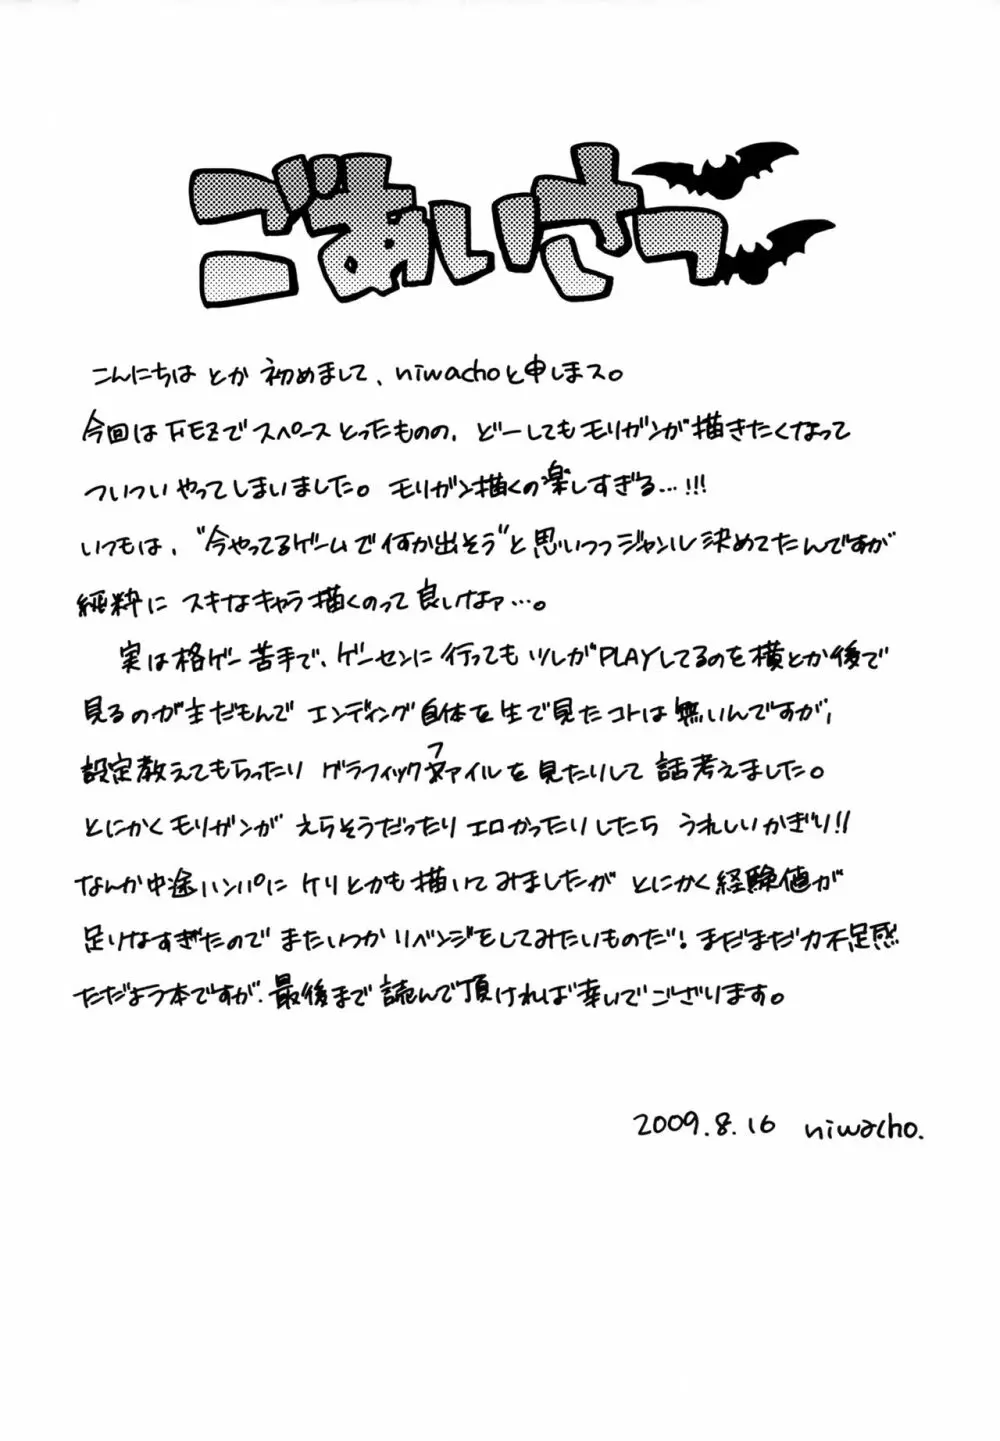 ごあいさつ
こんにちは とか 初めまして、niwachoと申しまス。
今回はFEZでスペースとったものの、どーしてもモリガンが描きたくなって
ついついやってしまいました。モリガン描くの楽しすぎる…!!!
いつもは、"今やってるゲームで何か出そう"と思いつつジャンル決めてたんですが
純粋に スキなキャラ描くのって良いなァ…。
実は格ゲー苦手で、ゲーセンに行ってもツレがPLAYしてるのを横とか後で
見るのが主だもんで エンディング自体を生で見たコトは無いんですが、
設定教えてもらったり グラフィックファイルを見たりして 話考えました。
とにかくモリガンが えらそうだったり エロかったりしたら うれしいかぎり!!
なんか中途ハンパに ケリとかも描いてみましたが とにかく経験値が
足りなすぎたので またいつか リベンジをしてみたいものだ! まだまだ力不足感
ただよう本ですが、最後まで読んで頂ければ幸いでござります。
2009.8.16 niwacho.